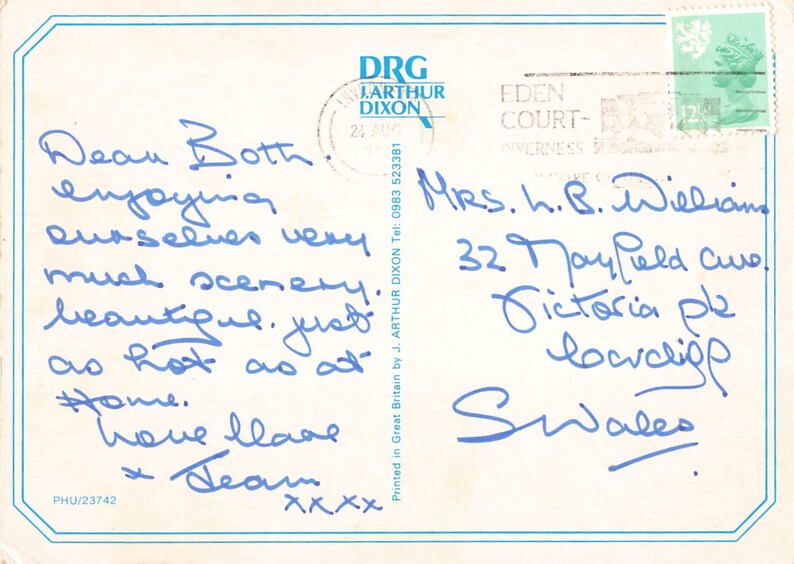 DRG
J.ARTHUR
DIXON
24 AUG
EDEN
COURT-
INVERNESS
12½
Dear Both.
enjoying
ourselves very
much scenery.
beautiful. just
as hot as at
Home.
Love
+ Jean
xxxx
PHU/23742
Printed in Great Britain by J. ARTHUR DIXON Tel: 0983 523381
Mrs. L. B. Williams
32 Mayfield Ave.
Victoria pk
Cardiff
S Wales